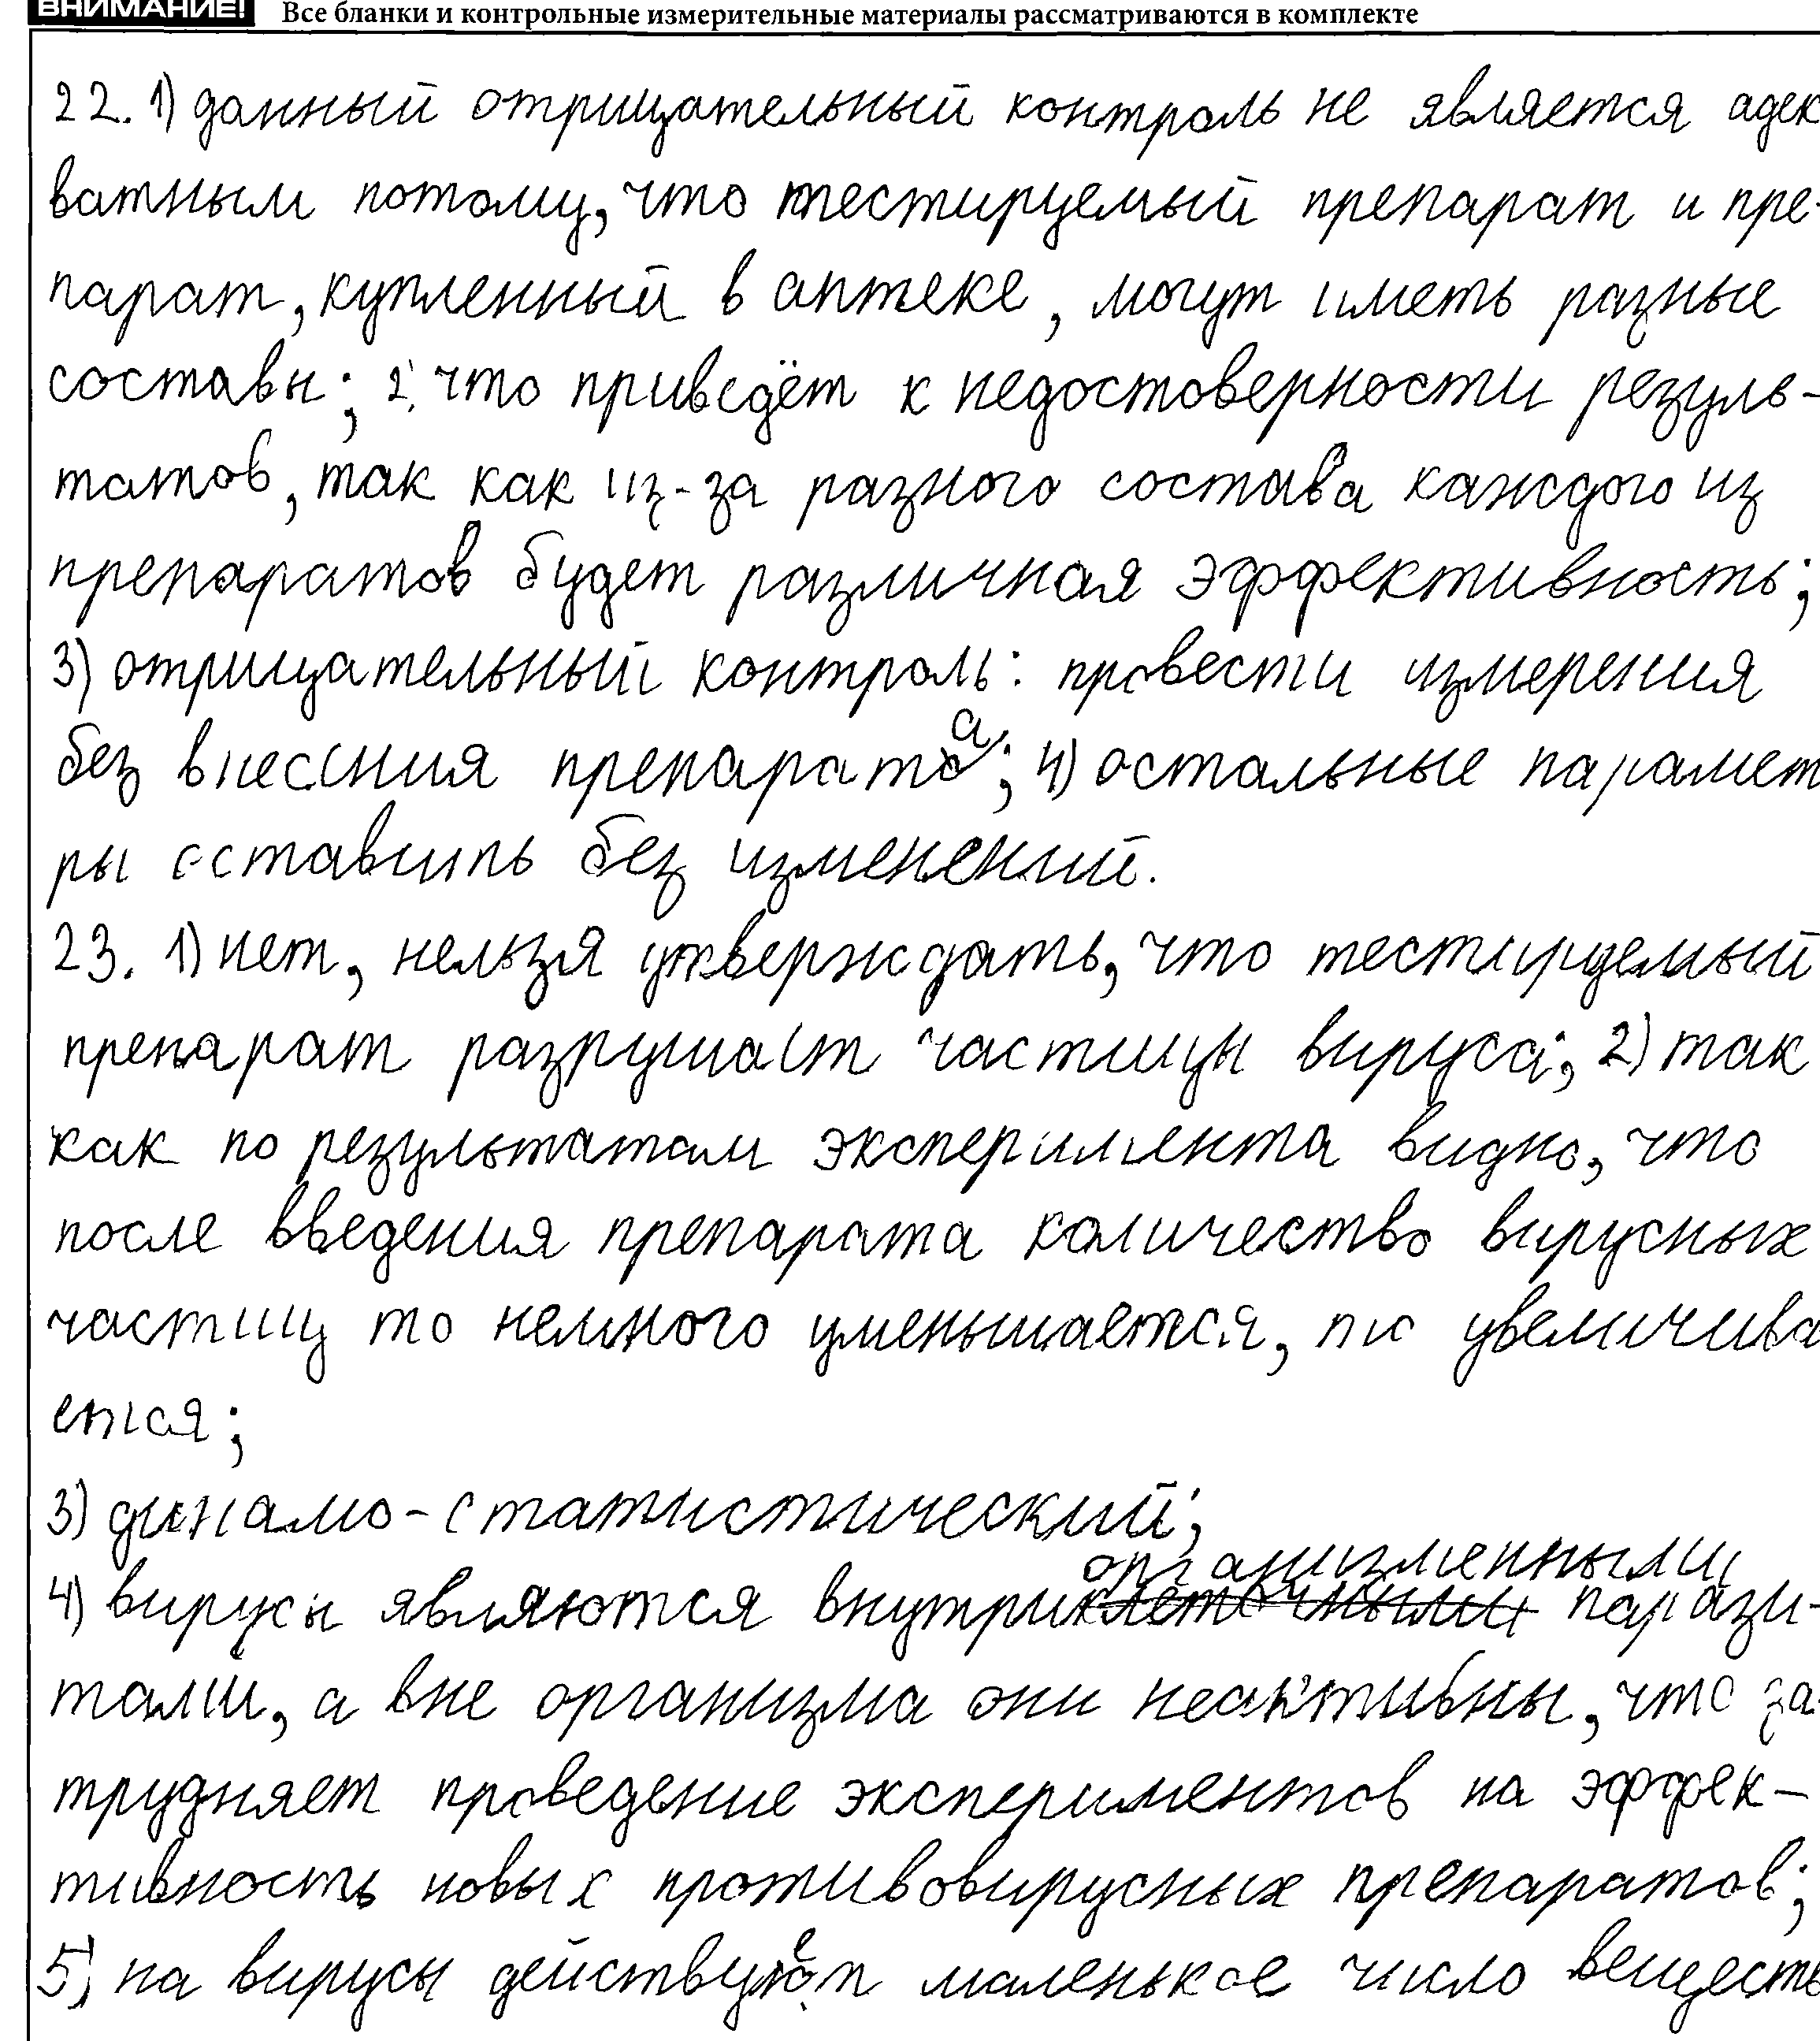 ВНИМАНИЕ! Все бланки и контрольные измерительные материалы рассматриваются в комплекте
22. 1) данный отрицательный контроль не является адек
ватным потому, что тестируемый препарат и пре-
парат, купленный в аптеке, могут иметь разные
составы; 2) что приведёт к недостоверности резуль-
татов, так как из-за разного состава каждого из
препаратов будет различная эффективность;
3) отрицательный контроль: провести измерения
без внесения препарата; 4) остальные парамет
ры оставить без изменений.
23. 1) нет, нельзя утверждать, что тестируемый
препарат разрушает частицы вируса; 2) так
как по результатам эксперимента видно, что
после введения препарата количество вирусных
частиц то немного уменьшается, то увеличива
ется;
3) динамо-статистический;
4) вирусы являются внутриорганизменными парази-
тами, а вне организма они неактивны, что за-
трудняет проведение экспериментов на эффек-
тивность новых противовирусных препаратов;
5) на вирусы действует маленькое число веществ